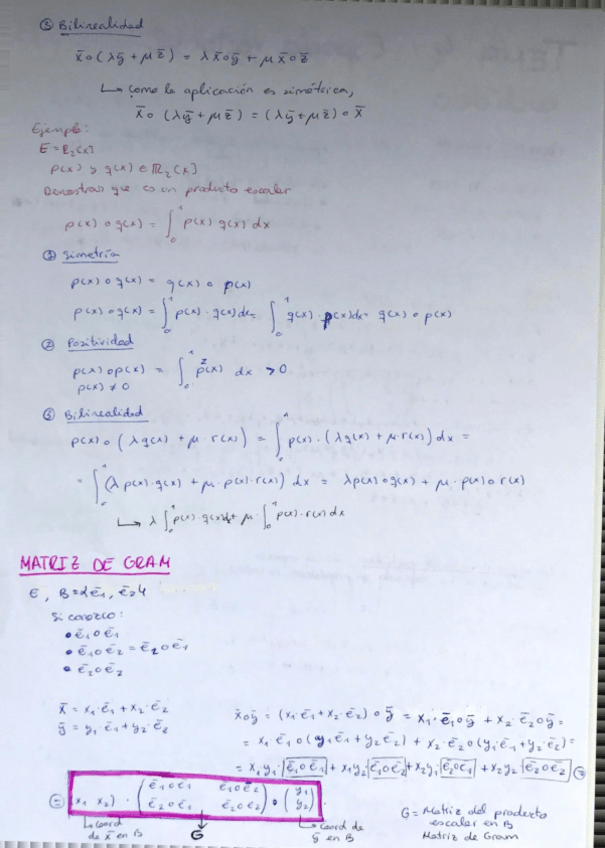 ③ Bilinealidad
x̄ o (λȳ + μ z̄) = λ x̄ o ȳ + μ x̄ o z̄
↳ como la aplicación es simétrica,
x̄ o (λȳ + μ z̄) = (λȳ + μ z̄) o x̄
Ejemplo:
E = P₂(x]
p(x) y q(x) ∈ ℝ₂(x]
Demostrar que es un producto escalar
p(x) o q(x) = ∫₀¹ p(x) q(x) dx
① Simetría
p(x) o q(x) = q(x) o p(x)
p(x) o q(x) = ∫₀¹ p(x) · q(x) dx = ∫₀¹ q(x) · p(x) dx = q(x) o p(x)
② Positividad
p(x) o p(x) = ∫₀¹ p²(x) dx > 0
p(x) ≠ 0
③ Bilinealidad
p(x) o (λ q(x) + μ · r(x)) = ∫₀¹ p(x) · (λ q(x) + μ · r(x)) dx =
= ∫₀¹ (λ p(x) · q(x) + μ · p(x) · r(x)) dx = λ p(x) o q(x) + μ · p(x) o r(x)
↳ λ ∫₀¹ p(x) · q(x) dx + μ · ∫₀¹ p(x) · r(x) dx
MATRIZ DE GRAM
E, B = {ē₁, ē₂}
Si conozco:
• ē₁ o ē₁
• ē₁ o ē₂ = ē₂ o ē₁
• ē₂ o ē₂
x̄ = x₁ · ē₁ + x₂ · ē₂
ȳ = y₁ · ē₁ + y₂ · ē₂
x̄ o ȳ = (x₁ · ē₁ + x₂ · ē₂) o ȳ = x₁ · ē₁ o ȳ + x₂ · ē₂ o ȳ =
= x₁ · ē₁ o (y₁ ē₁ + y₂ ē₂) + x₂ · ē₂ o (y₁ · ē₁ + y₂ · ē₂) =
= x₁ y₁ · ē₁ o ē₁ + x₁ y₂ ē₁ o ē₂ + x₂ y₁ ē₂ o ē₁ + x₂ y₂ ē₂ o ē₂ =
= (x₁ x₂) · ( ē₁ o ē₁ ē₁ o ē₂
ē₂ o ē₁ ē₂ o ē₂ ) · ( y₁
y₂ )
↳ coord de x̄ en B
G
↳ coord de ȳ en B
G = Matriz del producto
escalar en B
Matriz de Gram